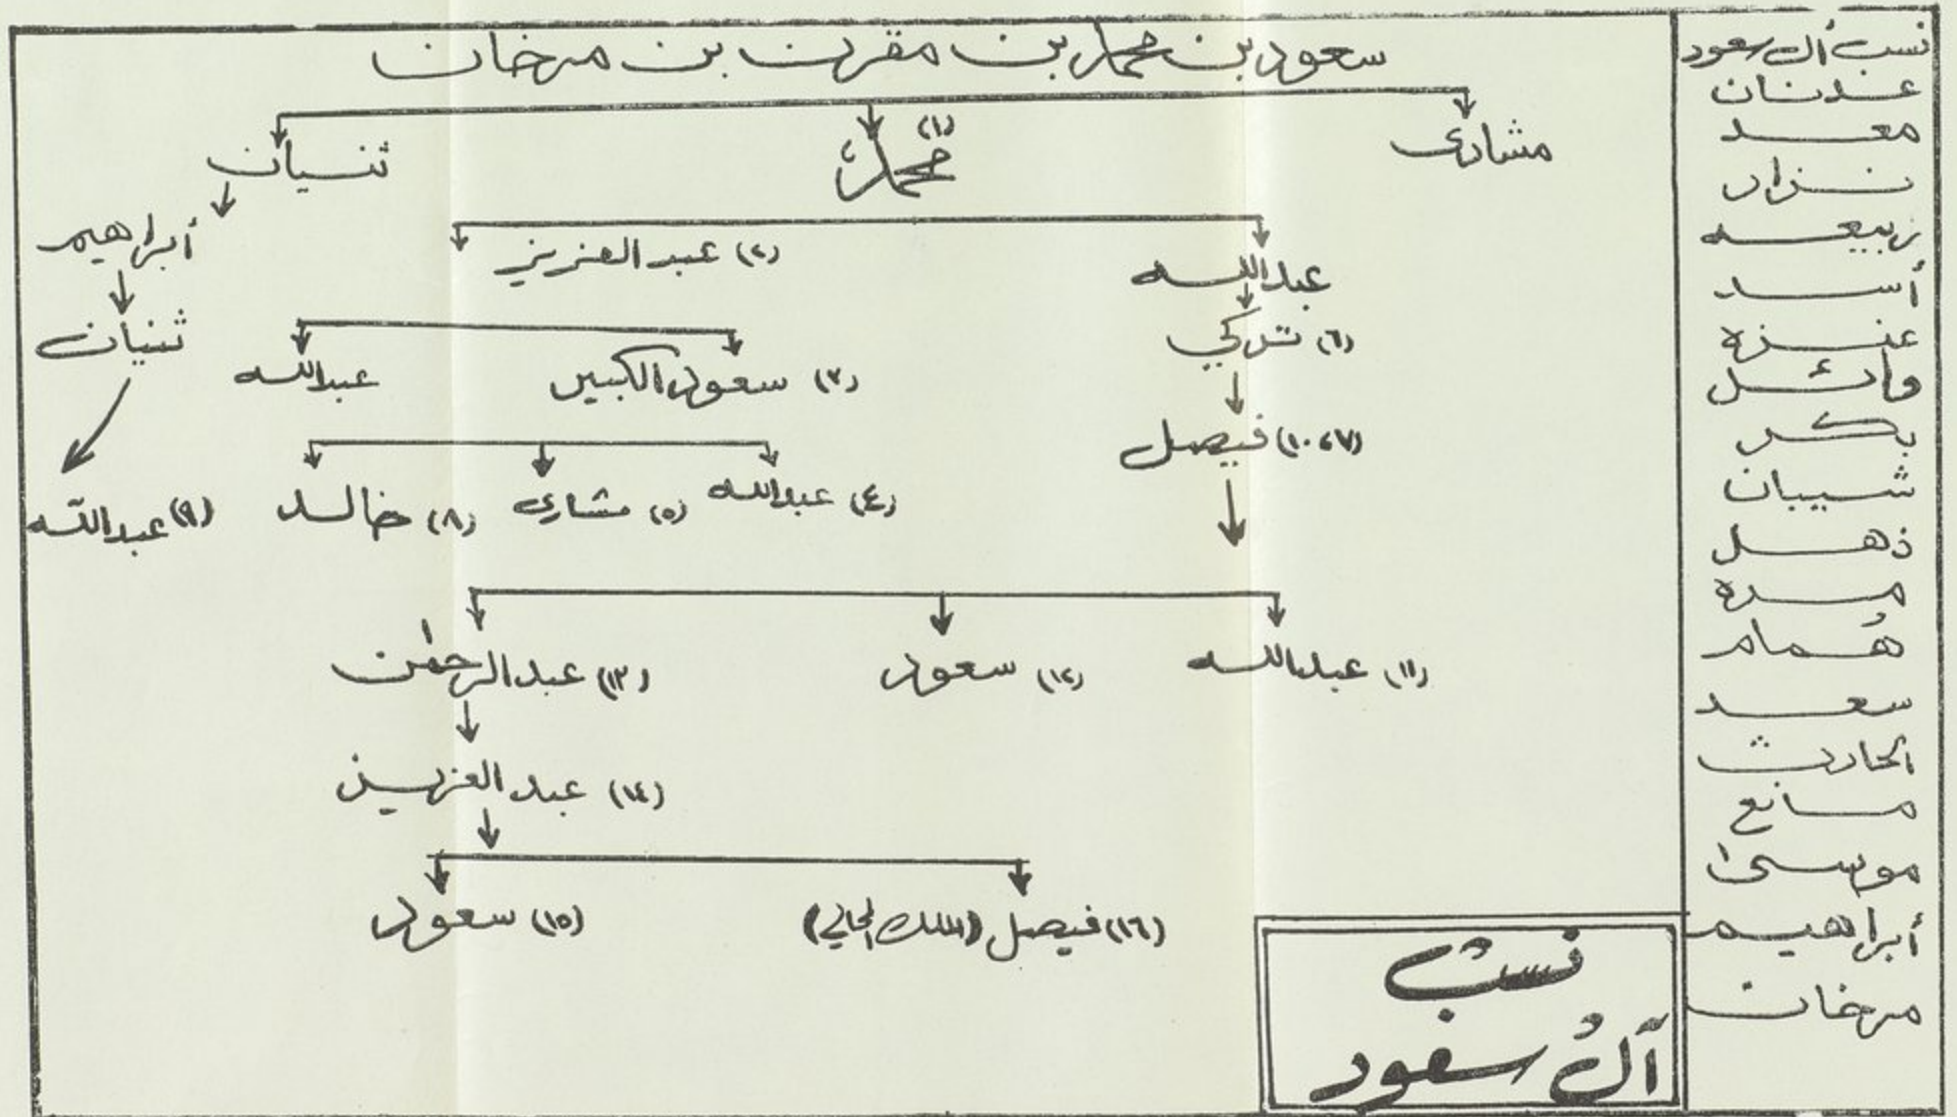 سعود بن محمد بن مقرن بن مرخان
مشارى
(١) محمد
ثنيان
ابراهيم
ثنيان
(٩) عبدالله
عبدالله
(٢) عبد العزيز
(٦) تركي
(٧،١٠) فيصل
(٣) سعود الكبير
عبدالله
(٤) عبدالله
(٥) مشارى
(٨) خالد
(١١) عبدالله
(١٢) سعود
(١٣) عبد الرحمٰن
(١٤) عبد العزيز
(١٦) فيصل (الملك الحالي)
(١٥) سعود
نسب أل سعود
عدنان
معد
نزار
ربيعه
أسد
عنزه
وائل
بكر
شيبان
ذهل
مره
هُمام
سعد
الحارث
مانع
موسى
أبراهيم
مرخان
نسب
آل سعود